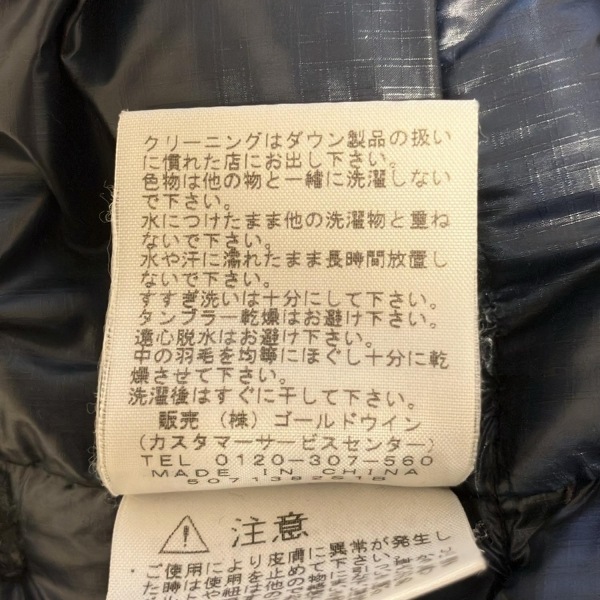 クリーニングはダウン製品の扱い
に慣れた店にお出し下さい。
色物は他の物と一緒に洗濯しない
で下さい。
水につけたまま他の洗濯物と重ね
ないで下さい。
水や汗に濡れたまま長時間放置し
ないで下さい。
すすぎ洗いは十分にして下さい。
タンブラー乾燥はお避け下さい。
遠心脱水はお避け下さい。
中の羽毛を均等にほぐし十分に乾
燥させて下さい。
洗濯後はすぐに干して下さい。
販売 (株) ゴールドウイン
(カスタマーサービスセンター)
TEL 0120-307-560
MADE IN CHINA
注意
ご使用により皮膚に異常が発生し